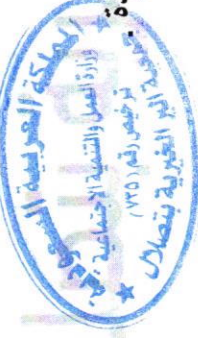 المملكة العربية السعودية
وزارة العمل والتنمية الاجتماعية
ترخيص رقم (٧٣٥)
جمعية البر الخيرية بنصلان